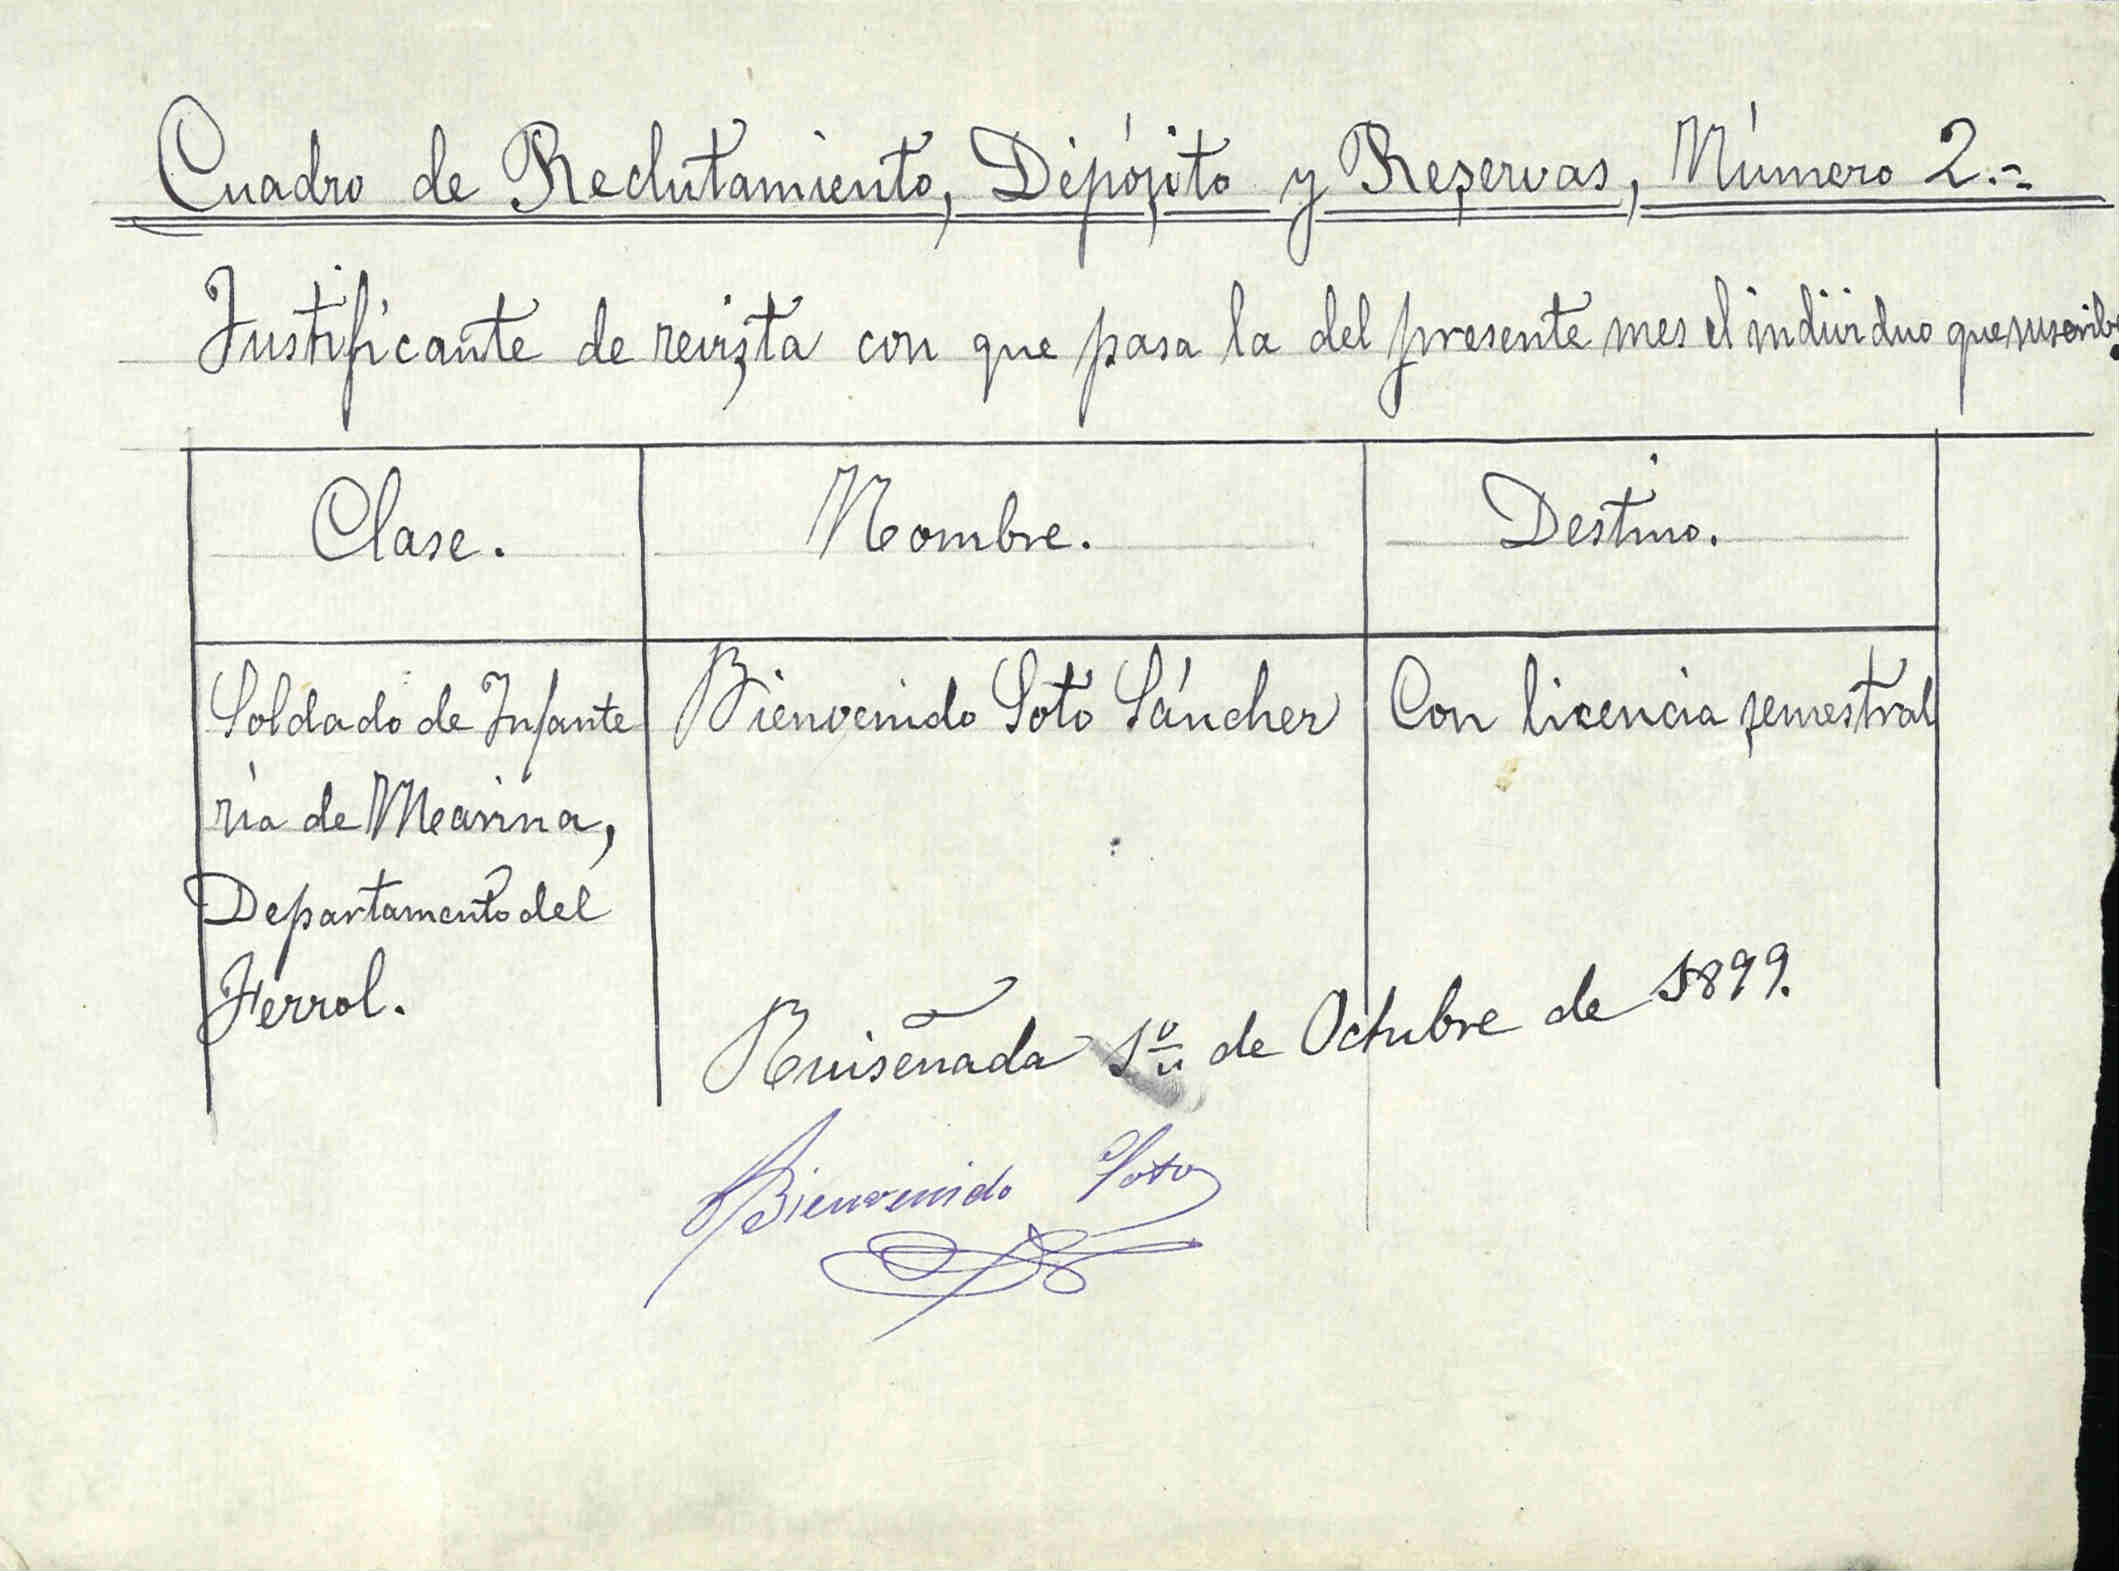 Cuadro de Reclutamiento, Depósito y Reservas, Número 2.
Justificante de revista con que pasa la del presente mes el individuo que suscribe.
Clase. Nombre. Destino.
Soldado de Infante Bienvenido Soto Sánchez Con licencia semestral
ría de Marina,
Departamento del
Ferrol.
Ruiseñada 1º de Octubre de 1899.
Bienvenido Soto